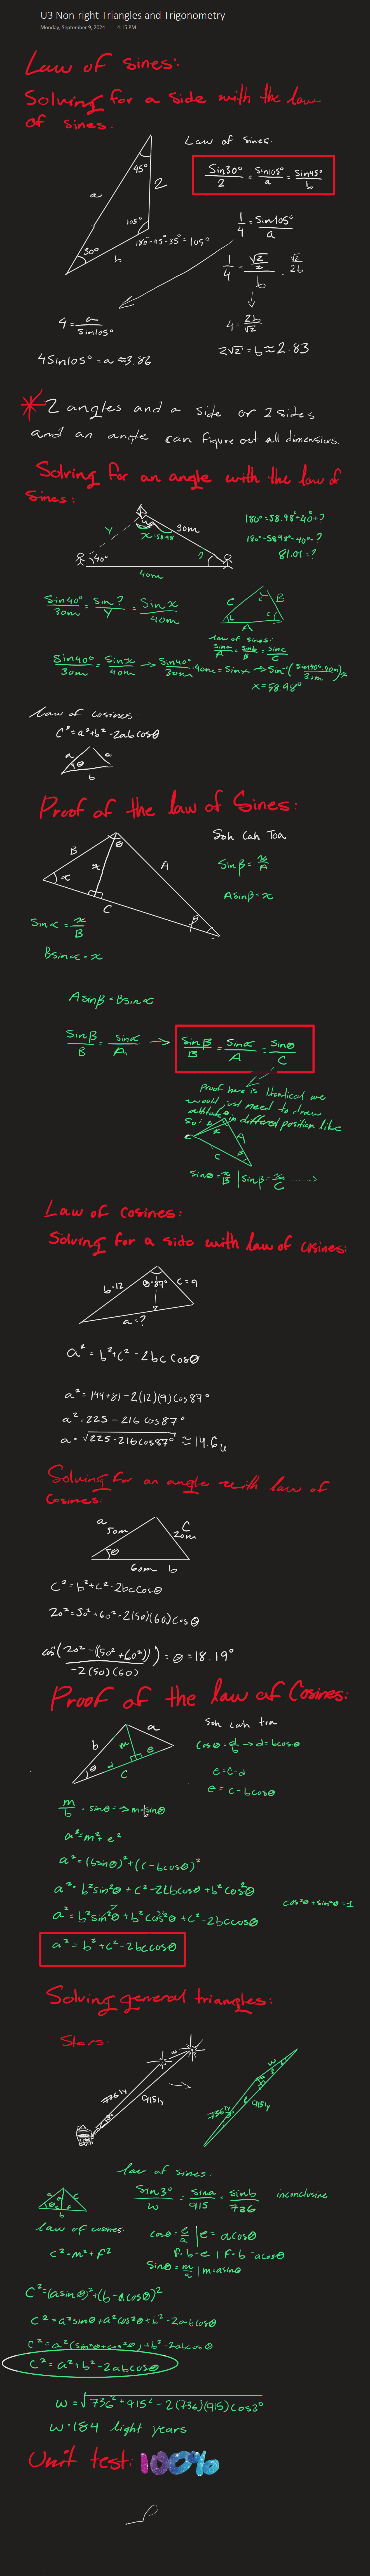 U3 Non-right Triangles and Trigonometry
Monday, September 9, 2024 4:15 PM
Law of sines:
Solving for a side with the law
of sines.
Law of sines:
45°
a
2
105°
30°
b
180°-45°-35°=105°
Sin30°/2 = Sin105°/a = Sin45°/b
1/4 = Sin105°/a
1/4 = (√2/2)/b = √2/2b
4 = a/Sin105°
4 = 2b/√2
4Sin105° = a ≈3.86
2√2 = b ≈ 2.83
* 2 angles and a side or 2 sides
and an angle can figure out all dimensions.
Solving for an angle with the law of
Sines:
Y
x=58.98
30m
40°
?
40m
180°=58.98°+40°+?
180°-58.98°-40°=?
81.01=?
Sin40°/30m = Sin?/Y = Sinx/40m
C B
b c
A
law of sines:
Sina/A = Sinb/B = Sinc/C
Sin40°/30m = Sinx/40m → Sin40°/30m · 40m = Sinx → Sin⁻¹(Sin40°·40m/30m)=x
x=58.98°
law of cosines:
C²=a²+b²-2abcosθ
a c
θ
b
Proof of the law of Sines:
B
θ
Soh Cah Toa
x
A
α
C
β
Sinβ = x/A
Asinβ=x
Sinα = x/B
Bsinα=x
Asinβ=Bsinα
Sinβ/B = Sinα/A →
Sinβ/B = Sinα/A = Sinθ/C
Proof here is identical we
would just need to draw
altitude in different position like
So:
B x A
C
β
sinθ=x/B | sinβ=x/C ......>
Law of cosines:
Solving for a side with law of cosines:
b=12 θ=87° c=9
a=?
a²=b²+c²-2bccosθ
a²=144+81-2(12)(9)cos87°
a²=225-216cos87°
a=√225-216cos87° ≈14.6u
Solving for an angle with law of
Cosines:
a
50m
C
20m
θ
60m b
C²=b²+c²-2bccosθ
20²=50²+60²-2(50)(60)cosθ
cos⁻¹((20²-(50²+60²))/-2(50)(60)) = θ=18.19°
Proof of the law of Cosines:
b a
m
θ d e
C
Soh cah toa
cosθ=d/b → d=bcosθ
e=c-d
e=c-bcosθ
m/b = sinθ=>m=bsinθ
a²=m²+e²
a²=(bsinθ)²+(c-bcosθ)²
a²=b²sin²θ+c²-2cbcosθ+b²cos²θ
a²=b²sin²θ+b²cos²θ+c²-2bccosθ
cos²θ+sin²θ=1
a²=b²+c²-2bccosθ
Solving general triangles:
Stars:
w
736ly
915ly
→
w
736ly
915ly
law of sines:
Sin3°/w = Sina/915 = Sinb/736 inconclusive
law of cosines:
cosθ=e/a | e=acosθ
f=b-e | f=b-acosθ
C²=m²+f²
Sinθ=m/a | m=asinθ
C²=(asinθ)²+(b-acosθ)²
C²=a²sinθ+a²cos²θ+b²-2abcosθ
C²=a²(sin²θ+cos²θ)+b²-2abcosθ
C²=a²+b²-2abcosθ
w=√736²+915²-2(736)(915)cos3°
w=184 light years
Unit test: 100%